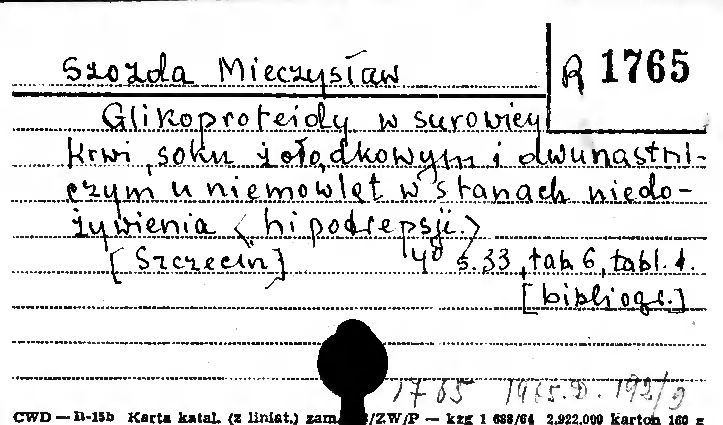 Szozda Mieczysław R 1765
Glikoproteidy w surowicy
krwi, soku żołądkowym i dwunastni-
czym u niemowląt w stanach niedo-
żywienia (hipodrepsji.)
[Szczecin] 4° s. 33, tab. 6, tabl. 1.
[bibliogr.]
1765 1965.D. 192/9
CWD — B-15b Karta katal. (z liniat.) zam. /ZW/P — kzg 1 688/64 2.922.000 karton 160 g